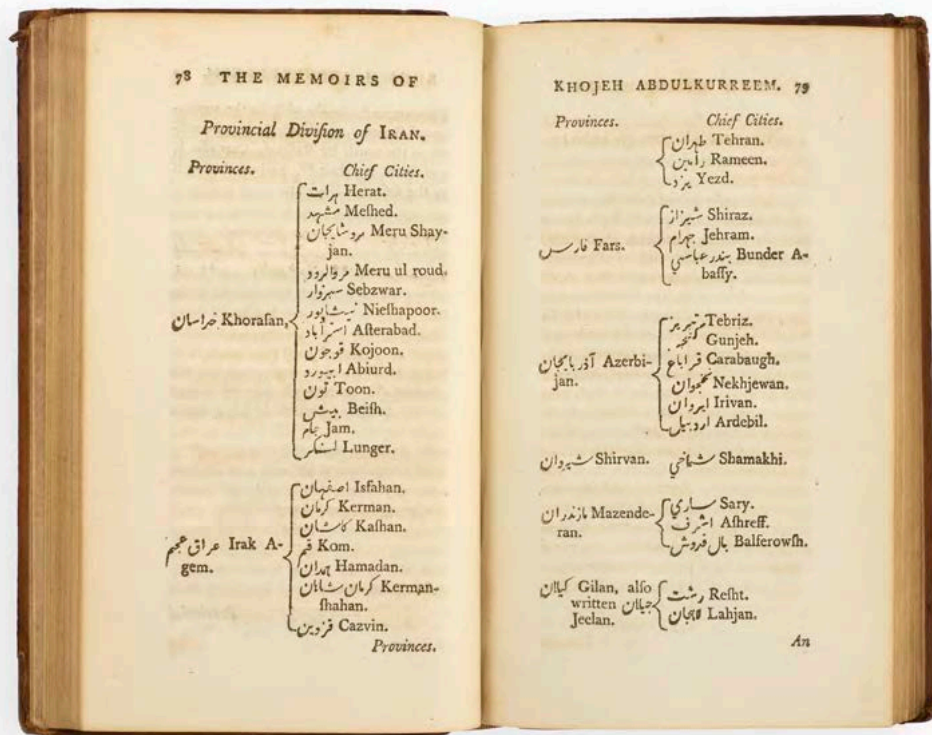 78 THE MEMOIRS OF
Provincial Diviſion of IRAN.
Provinces. Chief Cities.
هرات Herat.
مشهد Meſhed.
مروشایجان Meru Shay-
jan.
مروالرود Meru ul roud.
سبزوار Sebzwar.
نیشاپور Nieſhapoor.
خراسان Khoraſan,
استرآباد Aſterabad.
قوجون Kojoon.
ابیورد Abiurd.
تون Toon.
بیش Beiſh.
جام Jam.
لنگر Lunger.
اصفهان Isfahan.
کرمان Kerman.
کاشان Kaſhan.
عراق عجم Irak A-
gem.
قم Kom.
همدان Hamadan.
کرمان شاهان Kerman-
ſhahan.
قزوین Cazvin.
Provinces.
KHOJEH ABDULKURREEM. 79
Provinces. Chief Cities.
طهران Tehran.
رامین Rameen.
یزد Yezd.
فارس Fars.
شیراز Shiraz.
جهرام Jehram.
بندر عباسي Bunder A-
baſſy.
آذربایجان Azerbi-
jan.
تبریز Tebriz.
گنجه Gunjeh.
قراباغ Carabaugh.
نخجوان Nekhjewan.
ایروان Irivan.
اردبیل Ardebil.
شیروان Shirvan. شماخي Shamakhi.
مازندران Mazende-
ran.
ساري Sary.
اشرف Aſhreff.
بال فروش Balferowſh.
کیلان Gilan, alſo
written جیلان
Jeelan.
رشت Reſht.
لاهجان Lahjan.
An